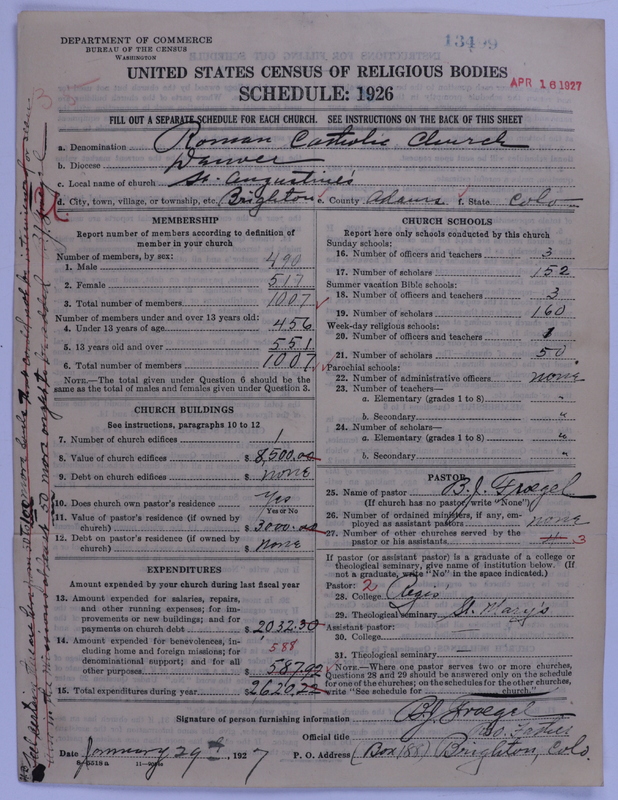 DEPARTMENT OF COMMERCE
BUREAU OF THE CENSUS
WASHINGTON
13499
UNITED STATES CENSUS OF RELIGIOUS BODIES
APR 16 1927
SCHEDULE: 1926
FILL OUT A SEPARATE SCHEDULE FOR EACH CHURCH. SEE INSTRUCTIONS ON THE BACK OF THIS SHEET
a. Denomination Roman Catholic Church
b. Diocese Denver
c. Local name of church St. Augustine's
d. City, town, village, or township, etc. Brighton e. County Adams f. State Colo
MEMBERSHIP
Report number of members according to definition of member in your church
Number of members, by sex:
1. Male 490
2. Female 517
3. Total number of members 1007
Number of members under and over 13 years old:
4. Under 13 years of age 456
5. 13 years old and over 551
6. Total number of members 1007
NOTE.—The total given under Question 6 should be the
same as the total of males and females given under Question 3.
CHURCH BUILDINGS
See instructions, paragraphs 10 to 12
7. Number of church edifices 1
8. Value of church edifices $ 8,500.00
9. Debt on church edifices $ none
10. Does church own pastor's residence Yes
Yes or No
11. Value of pastor's residence (if owned by
church) $ 3000.00
12. Debt on pastor's residence (if owned by
church) $ None
EXPENDITURES
Amount expended by your church during last fiscal year
13. Amount expended for salaries, repairs,
and other running expenses; for im-
provements or new buildings; and for
payments on church debt $ 2032.30
14. Amount expended for benevolences, in-
cluding home and foreign missions; for
denominational support; and for all
other purposes $ 587.92
588
15. Total expenditures during year $ 2620.22
CHURCH SCHOOLS
Report here only schools conducted by this church
Sunday schools:
16. Number of officers and teachers 3
17. Number of scholars 152
Summer vacation Bible schools:
18. Number of officers and teachers 3
19. Number of scholars 160
Week-day religious schools:
20. Number of officers and teachers 1
21. Number of scholars 50
Parochial schools:
22. Number of administrative officers none
23. Number of teachers—
a. Elementary (grades 1 to 8) "
b. Secondary "
24. Number of scholars—
a. Elementary (grades 1 to 8) "
b. Secondary "
PASTOR
25. Name of pastor B. J. Froegel
(If church has no pastor, write "None")
26. Number of ordained ministers, if any, em-
ployed as assistant pastors none
27. Number of other churches served by the
pastor or his assistants 3
If pastor (or assistant pastor) is a graduate of a college or
theological seminary, give name of institution below. (If
not a graduate, write "No" in the space indicated.)
Pastor: 2
28. College Regis
29. Theological seminary St. Mary's
Assistant pastor:
30. College —
31. Theological seminary —
NOTE.—Where one pastor serves two or more churches,
Questions 28 and 29 should be answered only on the schedule
for one of the churches; on the schedules for the other churches,
write "See schedule for church."
Signature of person furnishing information BJ Froegel
Official title
Date January 29th, 1927 P. O. Address (Box 188) Brighton, Colo.
8-5518a